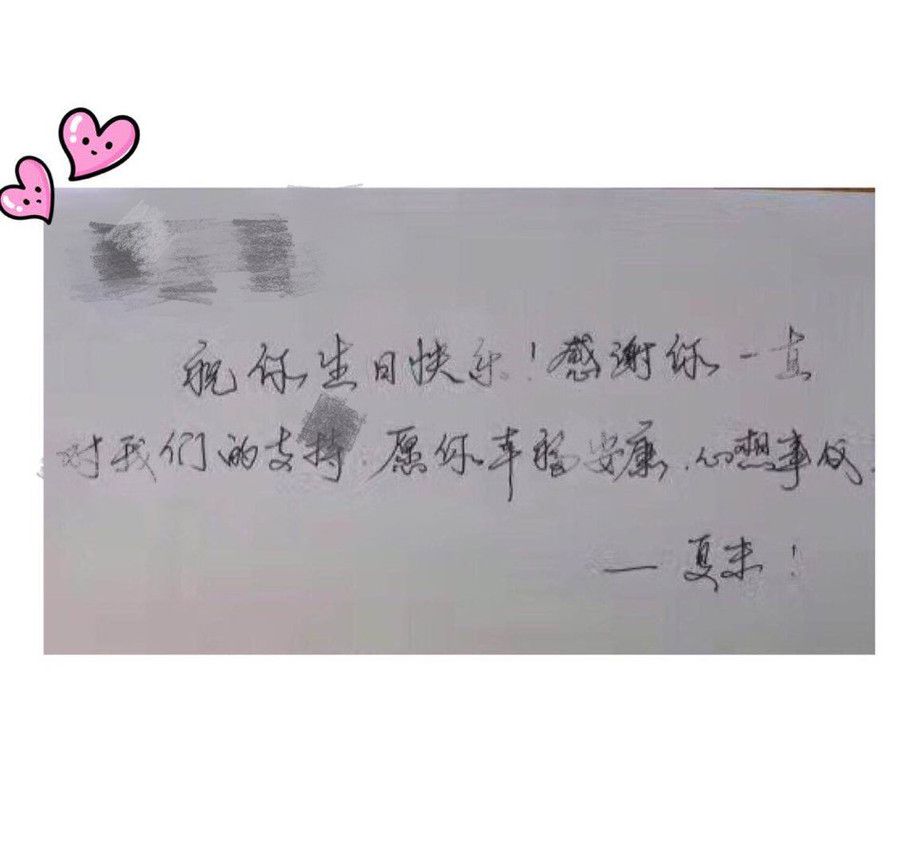 祝你生日快乐!感谢你一直
对我们的支持.愿你幸福安康.心想事成.
— 夏末!